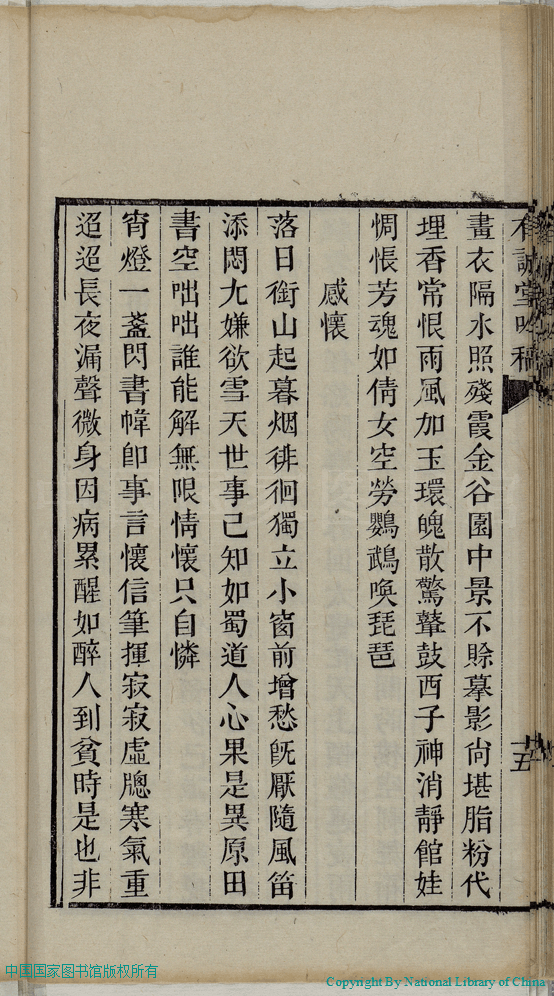 有誠堂吟稿
五
畫衣隔水照殘霞金谷園中景不賖摹影尙堪脂粉代
埋香常恨雨風加玉環魄散驚鼙鼓西子神消靜館娃
惆悵芳魂如倩女空勞鸚鵡喚琵琶
感懷
落日銜山起暮烟徘徊獨立小窗前增愁旣厭隨風笛
添悶尢嫌欲雪天世事已知如蜀道人心果是異原田
書空咄咄誰能解無限情懷只自憐
宵燈一盞閃書幃卽事言懷信筆揮寂寂虛牕寒氣重
迢迢長夜漏聲微身因病累醒如醉人到貧時是也非
中国国家图书馆版权所有
Copyright By National Library of China